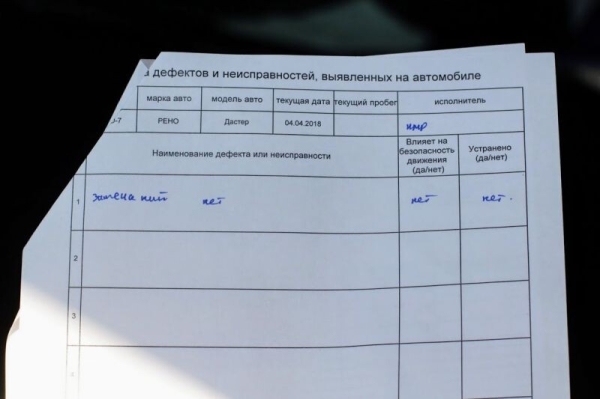 дефектов и неисправностей, выявленных на автомобиле
марка авто модель авто текущая дата текущий пробег исполнитель
-7 РЕНО Дастер 04.04.2018
Наименование дефекта или неисправности Влияет на безопасность движения (да/нет) Устранено (да/нет)
1 замена нет нет нет.
2
3